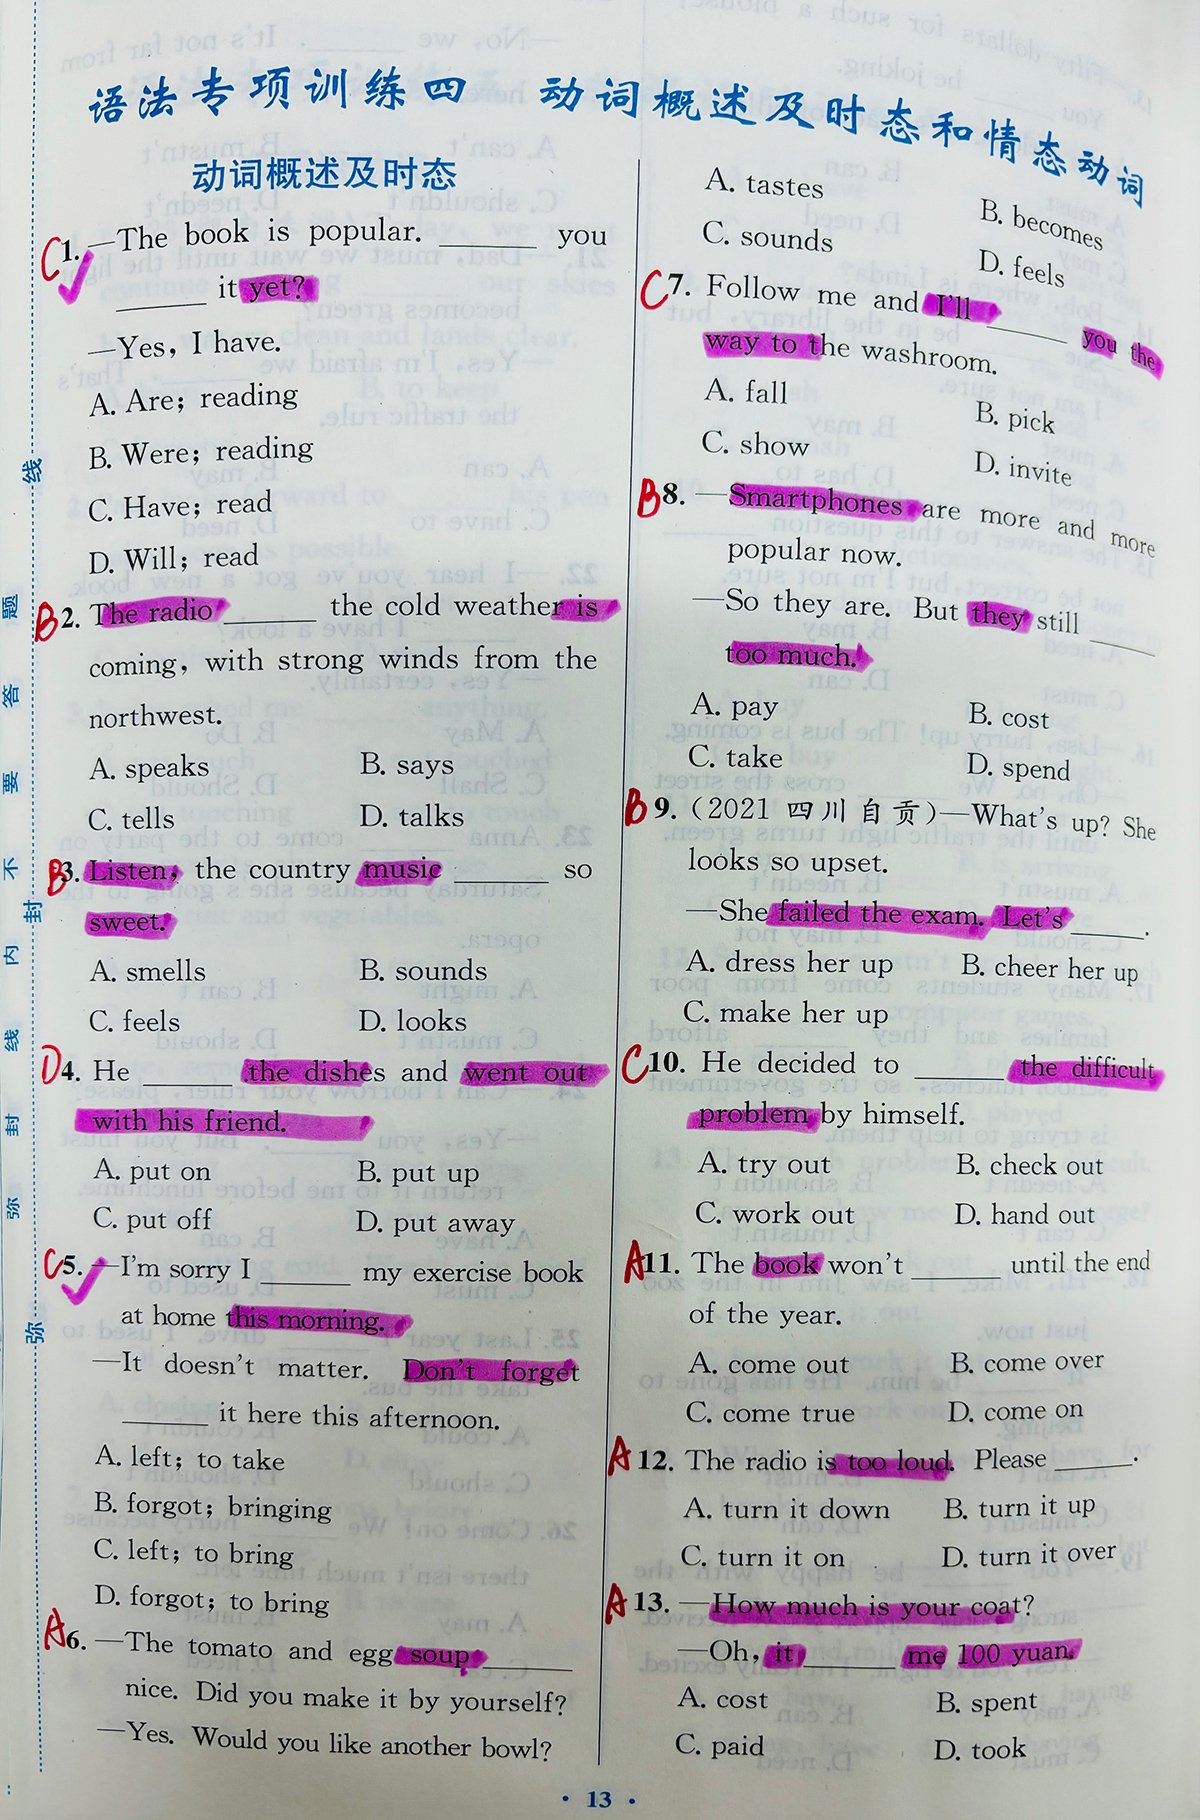 语法专项训练四 动词概述及时态和情态动词
动词概述及时态
C 1. —The book is popular. ______ you
______ it yet?
—Yes, I have.
A. Are; reading
B. Were; reading
C. Have; read
D. Will; read
B 2. The radio ______ the cold weather is
coming, with strong winds from the
northwest.
A. speaks B. says
C. tells D. talks
B 3. Listen, the country music ______ so
sweet.
A. smells B. sounds
C. feels D. looks
D 4. He ______ the dishes and went out
with his friend.
A. put on B. put up
C. put off D. put away
C 5. —I'm sorry I ______ my exercise book
at home this morning.
—It doesn't matter. Don't forget
______ it here this afternoon.
A. left; to take
B. forgot; bringing
C. left; to bring
D. forgot; to bring
A 6. —The tomato and egg soup ______
nice. Did you make it by yourself?
—Yes. Would you like another bowl?
A. tastes B. becomes
C. sounds D. feels
C 7. Follow me and I'll ______ you the
way to the washroom.
A. fall B. pick
C. show D. invite
B 8. —Smartphones are more and more
popular now.
—So they are. But they still ______
too much.
A. pay B. cost
C. take D. spend
B 9. (2021 四川自贡)—What's up? She
looks so upset.
—She failed the exam. Let's ______.
A. dress her up B. cheer her up
C. make her up
C 10. He decided to ______ the difficult
problem by himself.
A. try out B. check out
C. work out D. hand out
A 11. The book won't ______ until the end
of the year.
A. come out B. come over
C. come true D. come on
A 12. The radio is too loud. Please ______.
A. turn it down B. turn it up
C. turn it on D. turn it over
A 13. —How much is your coat?
—Oh, it ______ me 100 yuan.
A. cost B. spent
C. paid D. took
· 13 ·
弥 封 线 内 不 要 答 题
弥 封 线